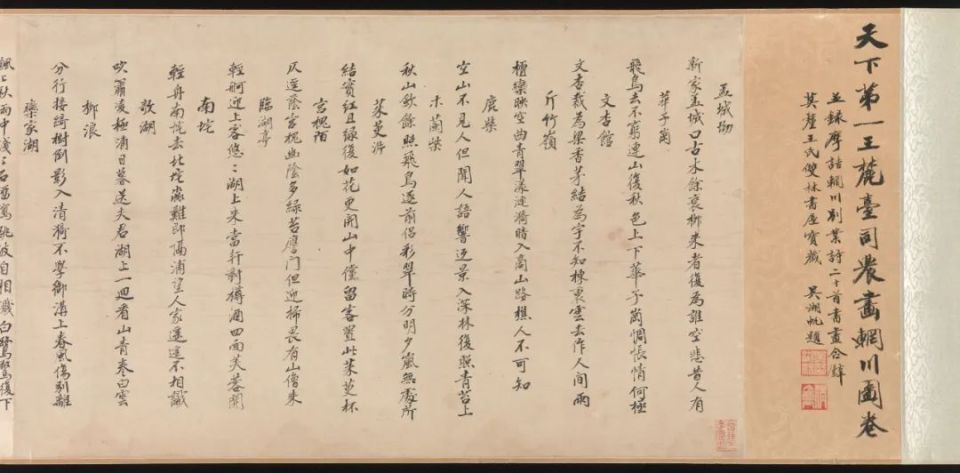 天下第一王麓臺司農畫輞川圖卷
並錄摩詰輞川別業詩二十首書畫合鋒
莫釐王氏雙林書屋寶藏 吳湖帆題
孟城坳
新家孟城口古木餘衰柳來者復為誰空悲昔人有
華子崗
飛鳥去不窮連山復秋色上下華子崗惆悵情何極
文杏館
文杏裁為梁香茅結為宇不知棟裏雲去作人間雨
斤竹嶺
檀欒映空曲青翠漾漣漪暗入商山路樵人不可知
鹿柴
空山不見人但聞人語響返景入深林復照青苔上
木蘭柴
秋山斂餘照飛鳥逐前侶彩翠時分明夕嵐無處所
茱萸沜
結實紅且綠復如花更開山中儻留客置此茱萸杯
宮槐陌
仄逕蔭宮槐幽陰多綠苔應門但迎掃畏有山僧來
臨湖亭
輕舸迎上客悠悠湖上來當軒對樽酒四面芙蓉開
南垞
輕舟南垞去北垞淼難即隔浦望人家遙遙不相識
欹湖
吹簫凌極浦日暮送夫君湖上一迴看山青卷白雲
柳浪
分行接綺樹倒影入清漪不學御溝上春風傷別離
欒家瀨
颯上秋雨中淺淺石溜瀉跳波自相濺白鷺驚復下